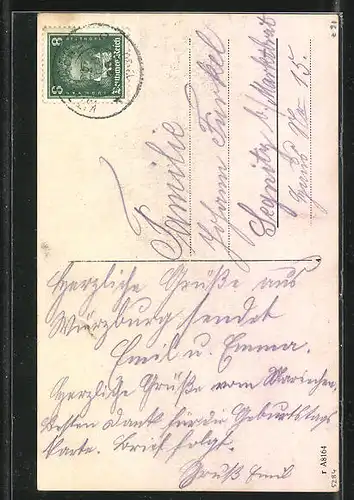 8 Deutsches Reich 8
Familie
Johann Furkel
Segnitz b/ Marktbreit
Haus No 15.
Herzliche Grüße aus
Würzburg sendet
Emil u. Emma.
Herzliche Grüße vom Mariechen,
besten Dank für die Geburtstags
karte. Brief folgt.
Gruß Emil
r A8164